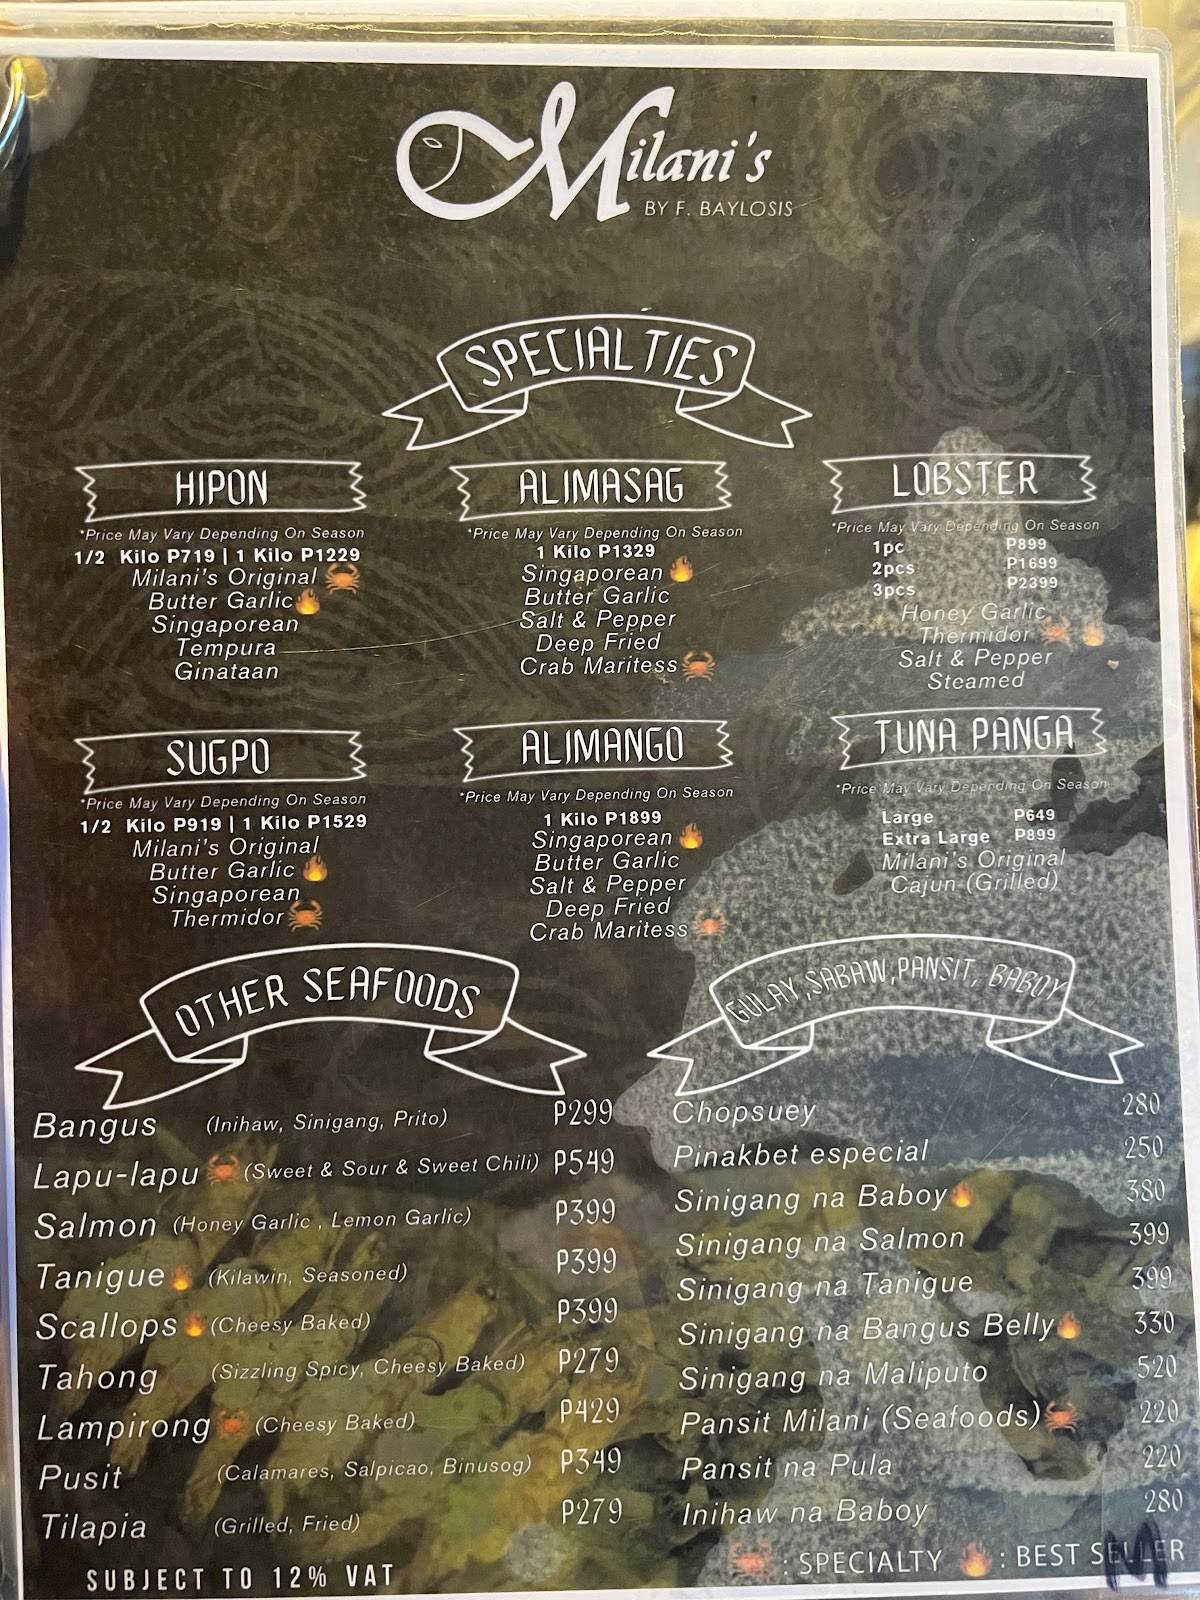 Milani's
BY F. BAYLOSIS
SPECIALTIES
HIPON
*Price May Vary Depending On Season
1/2 Kilo P719 | 1 Kilo P1229
Milani's Original
Butter Garlic
Singaporean
Tempura
Ginataan
ALIMASAG
*Price May Vary Depending On Season
1 Kilo P1329
Singaporean
Butter Garlic
Salt & Pepper
Deep Fried
Crab Maritess
LOBSTER
*Price May Vary Depending On Season
1pc P899
2pcs P1699
3pcs P2399
Honey Garlic
Thermidor
Salt & Pepper
Steamed
SUGPO
*Price May Vary Depending On Season
1/2 Kilo P919 | 1 Kilo P1529
Milani's Original
Butter Garlic
Singaporean
Thermidor
ALIMANGO
*Price May Vary Depending On Season
1 Kilo P1899
Singaporean
Butter Garlic
Salt & Pepper
Deep Fried
Crab Maritess
TUNA PANGA
*Price May Vary Depending On Season
Large P649
Extra Large P899
Milani's Original
Cajun (Grilled)
OTHER SEAFOODS
Bangus (Inihaw, Sinigang, Prito) P299
Lapu-lapu (Sweet & Sour & Sweet Chili) P549
Salmon (Honey Garlic , Lemon Garlic) P399
Tanigue (Kilawin, Seasoned) P399
Scallops (Cheesy Baked) P399
Tahong (Sizzling Spicy, Cheesy Baked) P279
Lampirong (Cheesy Baked) P429
Pusit (Calamares, Salpicao, Binusog) P349
Tilapia (Grilled, Fried) P279
SUBJECT TO 12% VAT
GULAY ,SABAW,PANSIT, BABOY
Chopsuey 280
Pinakbet especial 250
Sinigang na Baboy 380
Sinigang na Salmon 399
Sinigang na Tanigue 399
Sinigang na Bangus Belly 330
Sinigang na Maliputo 520
Pansit Milani (Seafoods) 220
Pansit na Pula 220
Inihaw na Baboy 280
: SPECIALTY : BEST SELLER
M